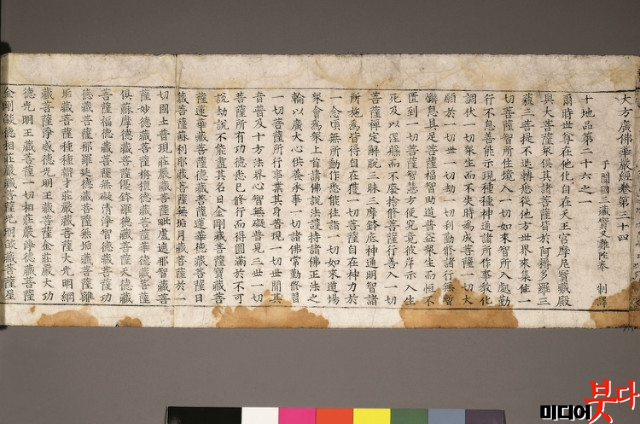 大方廣佛華嚴經卷第三十四
于闐國三藏實叉難陀奉 制譯
十地品第二十六之一
爾時世尊在他化自在天王宮摩尼寶藏殿
與大菩薩衆俱其諸菩薩皆於阿耨多羅三
藐三菩提不退轉悉從他方世界來集住一
切菩薩智所住境入一切如來智所入處勤
行不息善能示現種種神通諸所作事教化
調伏一切衆生而不失時為成菩薩一切大
願於一切世一切劫一切剎勤修諸行無暫
懈息具足菩薩福智助道普益衆生而恒不
匱到一切菩薩智慧方便究竟彼岸示入生
死及以涅槃而不廢捨修菩薩行善入一切
菩薩禪定解脫三昧三摩鉢底神通明智諸
所施為皆得自在獲一切菩薩自在神力於
一念頃無所動作悉能往詣一切如來道場
衆會為衆上首請佛說法護持諸佛正法之
輪以廣大心供養承事一切諸佛常勤修習
一切菩薩所行事業其身普現一切世間其
音普及十方法界心智無礙普見三世一切
菩薩所有功德悉已修行而得圓滿於不可
說劫說不能盡其名曰金剛藏菩薩寶藏菩
薩蓮華藏菩薩德藏菩薩蓮華德藏菩薩日
藏菩薩蘇利耶藏菩薩無垢月藏菩薩於一
切國土普現莊嚴藏菩薩毗盧遮那智藏菩
薩妙德藏菩薩栴檀德藏菩薩華德藏菩薩
俱蘇摩德藏菩薩優鉢羅德藏菩薩天德藏
菩薩福德藏菩薩無礙清淨智德藏菩薩功
德藏菩薩那羅延德藏菩薩無垢藏菩薩離
垢藏菩薩種種辯才莊嚴藏菩薩大光明網
藏菩薩淨威德光明王藏菩薩金莊嚴大功
德光明王藏菩薩一切相莊嚴淨德藏菩薩
金剛焰德相莊嚴藏菩薩光明焰藏菩薩星
미디어붓다